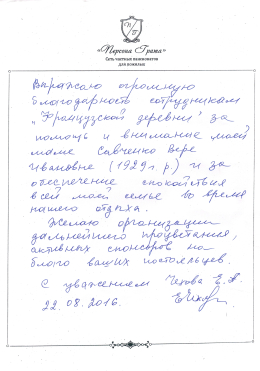 «Персона Грата»
Сеть частных пансионатов
для пожилых
Выражаю огромную
благодарность сотрудникам
„Французской деревни" за
помощь и внимание моей
маме Савченко Вере
Ивановне (1929г.р.) и за
обеспечение спокойствия
всей моей семье во время
нашего отдыха.
Желаю организации
дальнейшего процветания,
активных спонсоров на
благо ваших постояльцев.
С уважением Чехова Е.А.
22.08.2016.